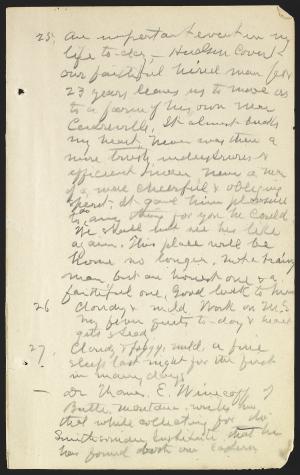 25, An important event in my
life to-day, – Hudson Covert
our faithful hired man for
23 years leaves us to move
to a farm of his own near
It almost breaks
my heart. Never was there a
more trusty, industrious &
efficient man, never a man
of a more cheerful & obliging
spirit. It gave him pleasure
to do any thing for you he could
We shall not see his like
again. This place will be
home no longer. Not a brainy
man, but an honest one & a
faithful one. Good luck to him
26 Cloudy & mild. Work on
My fever quits to-day &
gets
27. Cloudy & foggy, mild, a fine
sleep last night for the first
in many days
– Dr Thomas E. Winecoff, of
Butte, Montana, writes me
that while collecting for the
Smithsonian Institute that he
has found